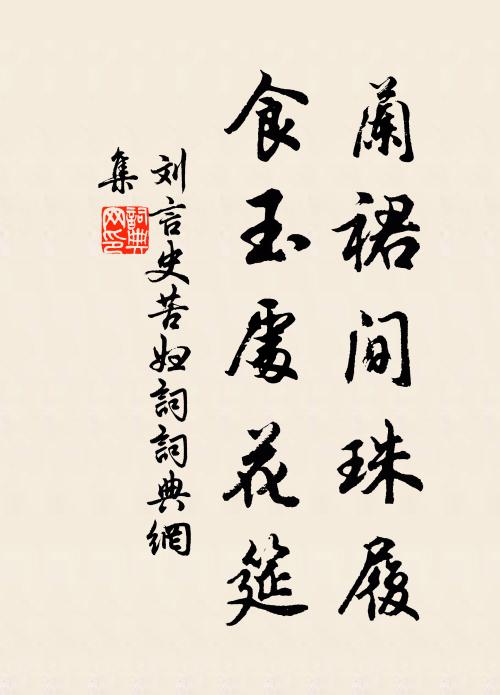 蘭裙間珠履
食玉處花筵
刘言史苦妇詞詞典網
集
詞典网印